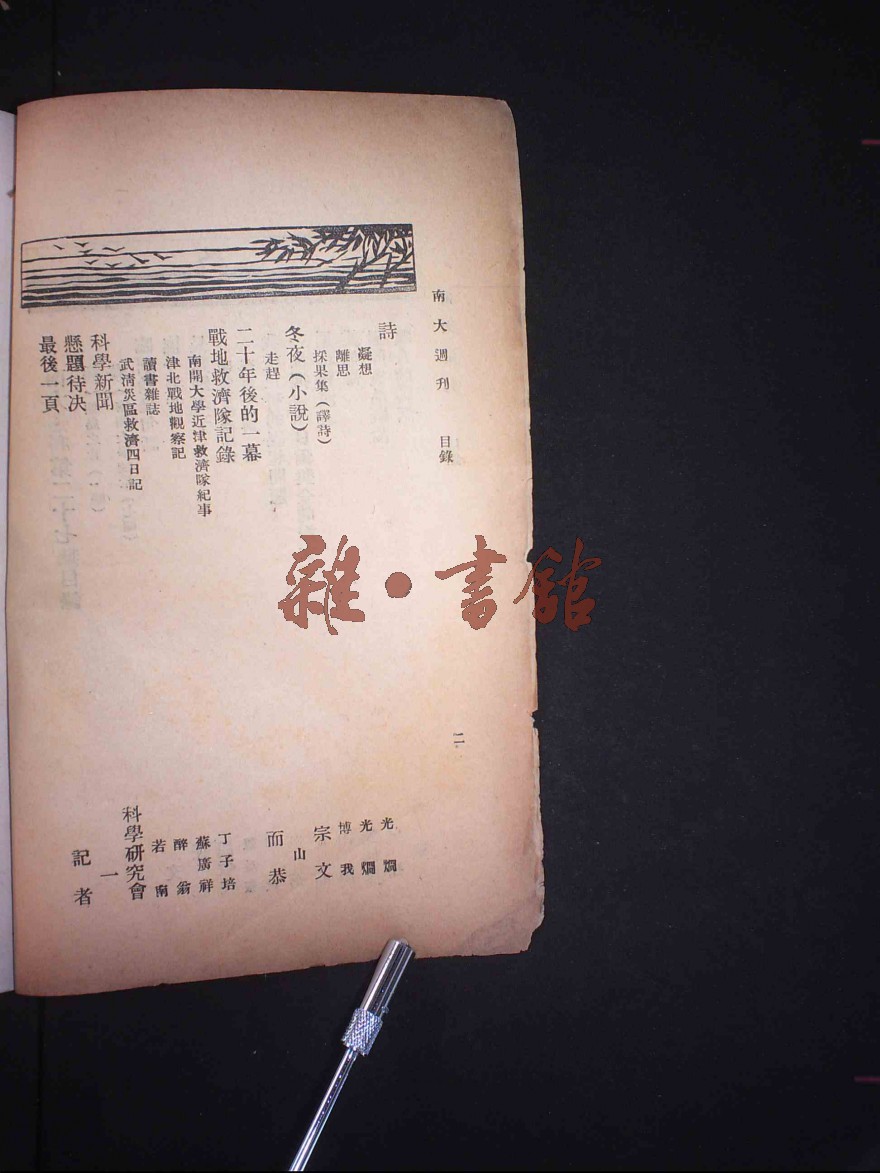 南大週刊 目錄 二
詩
凝想 光燗
離思 光燗
採果集(譯詩) 博我
冬夜(小說) 宗文
走趕 山
二十年後的一幕 而恭
戰地救濟隊記錄
南開大學近津救濟隊紀事 丁子培
津北戰地觀察記 蘇廣祥
讀書雜誌 醉翁
武清災區救濟四日記 若南
科學新聞 科學研究會
懸題待决 一
最後一頁 記者
雜·書館